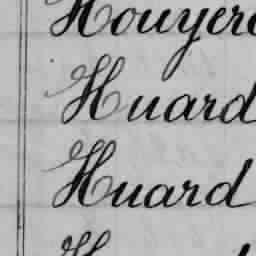 Houyer
Huard
Huard